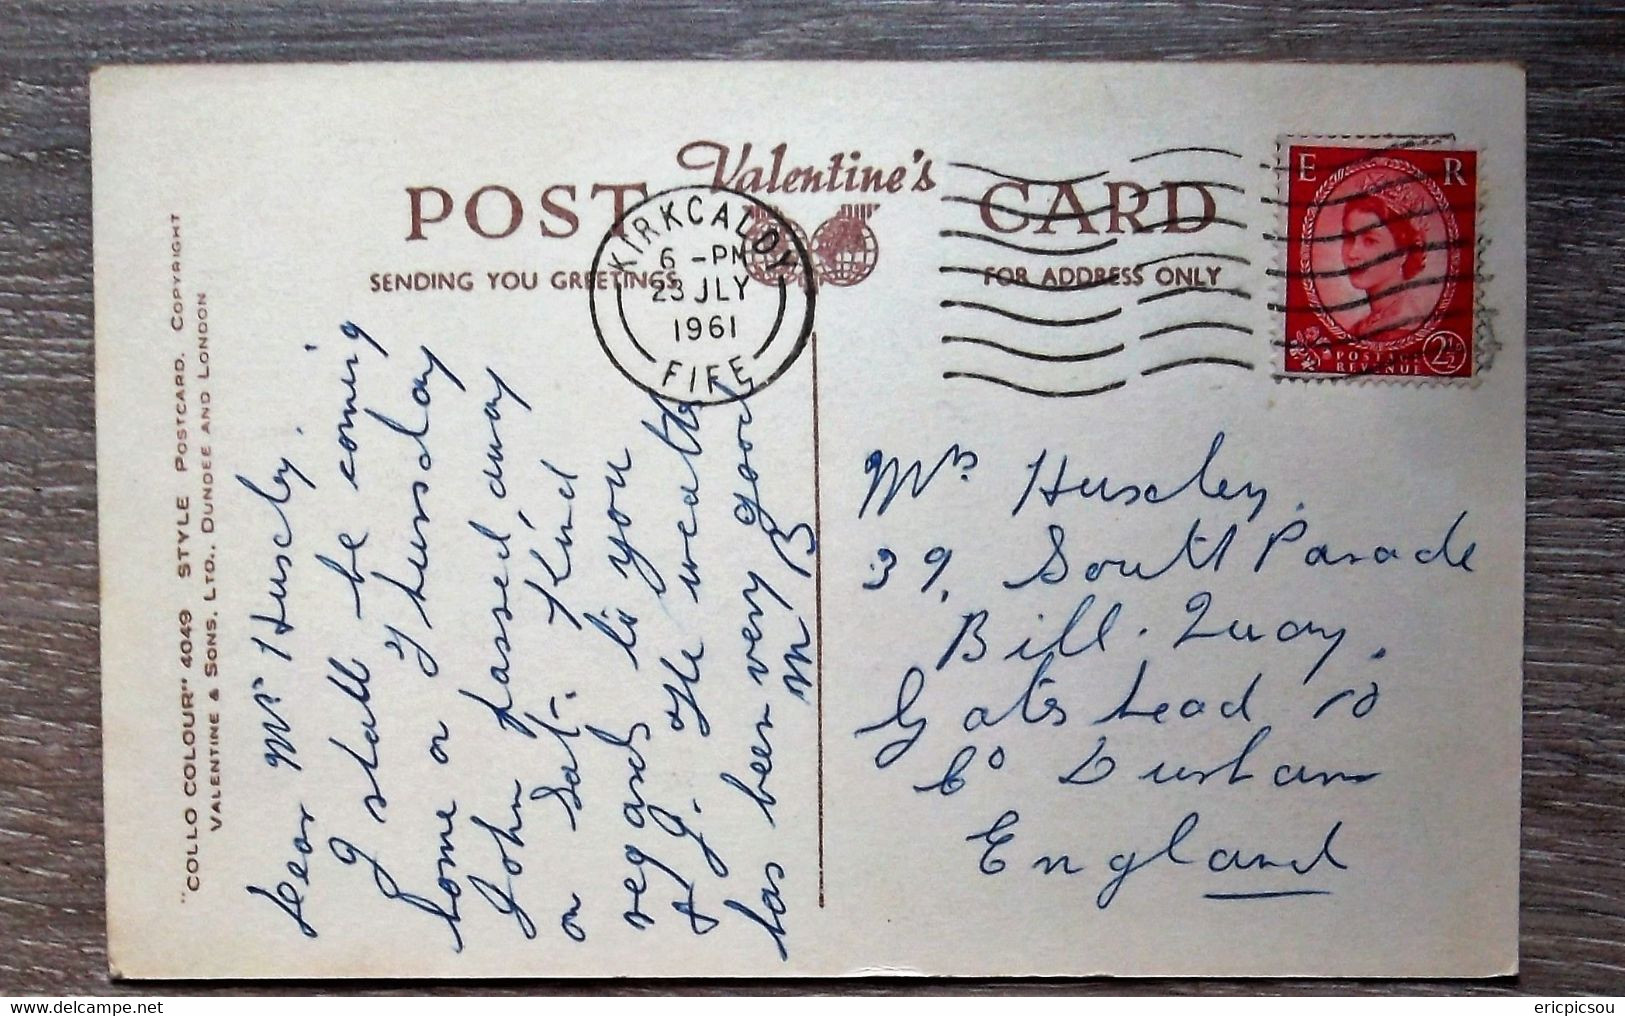 Valentine's
POST CARD
SENDING YOU GREETINGS
FOR ADDRESS ONLY
KIRKCALDY
6 - PM
23 JLY
1961
FIFE
E R
POSTAGE
REVENUE
2½D
"COLLO COLOUR" 4049 STYLE POSTCARD. COPYRIGHT
VALENTINE & SONS. LTD., DUNDEE AND LONDON
Dear Mrs Huscly.
I shall be coming
home on Thursday
John passed away
on Sat. Kind
regards to you
& G. The weather
has been very good
M B
Mrs Huscley.
39, South Parade
Bill. Quay.
Gateshead 10
Co Durham
England
ericpicsou